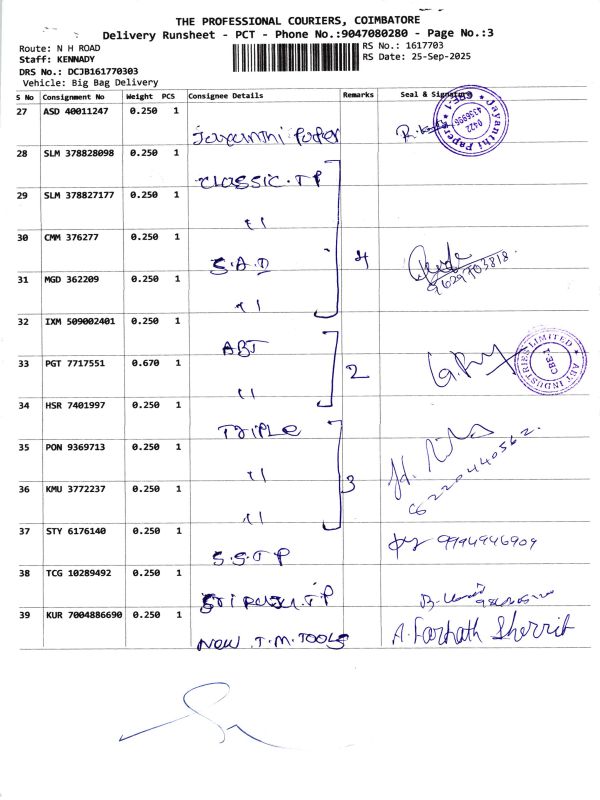 THE PROFESSIONAL COURIERS, COIMBATORE
Delivery Runsheet - PCT - Phone No.:9047080280 - Page No.:3
Route: N H ROAD
RS No.: 1617703
Staff: KENNADY
RS Date: 25-Sep-2025
DRS No.: DCJB161770303
Vehicle: Big Bag Delivery
S No Consignment No Weight PCS Consignee Details Remarks Seal & Signature
27 ASD 40011247 0.250 1
Jayanthi Paper
28 SLM 378828098 0.250 1
CLASSIC.TP
29 SLM 378827177 0.250 1
" 
30 CMM 376277 0.250 1
S.A.D 4
31 MGD 362209 0.250 1
9629703818.
"
32 IXM 509002401 0.250 1
ABT
33 PGT 7717551 0.670 1
2
"
34 HSR 7401997 0.250 1
TRIPLE
35 PON 9369713 0.250 1
"
36 KMU 3772237 0.250 1
3 6220440562.
"
37 STY 6176140 0.250 1
S.S.T.P 9994946909
38 TCG 10289492 0.250 1
39 KUR 7004886690 0.250 1
New .T.M.TOOLS A. Farhath Sherrif
Jayanthi Paper
0422
4356996
CBE-1
ABT INDUSTRIES LIMITED
CBE-1